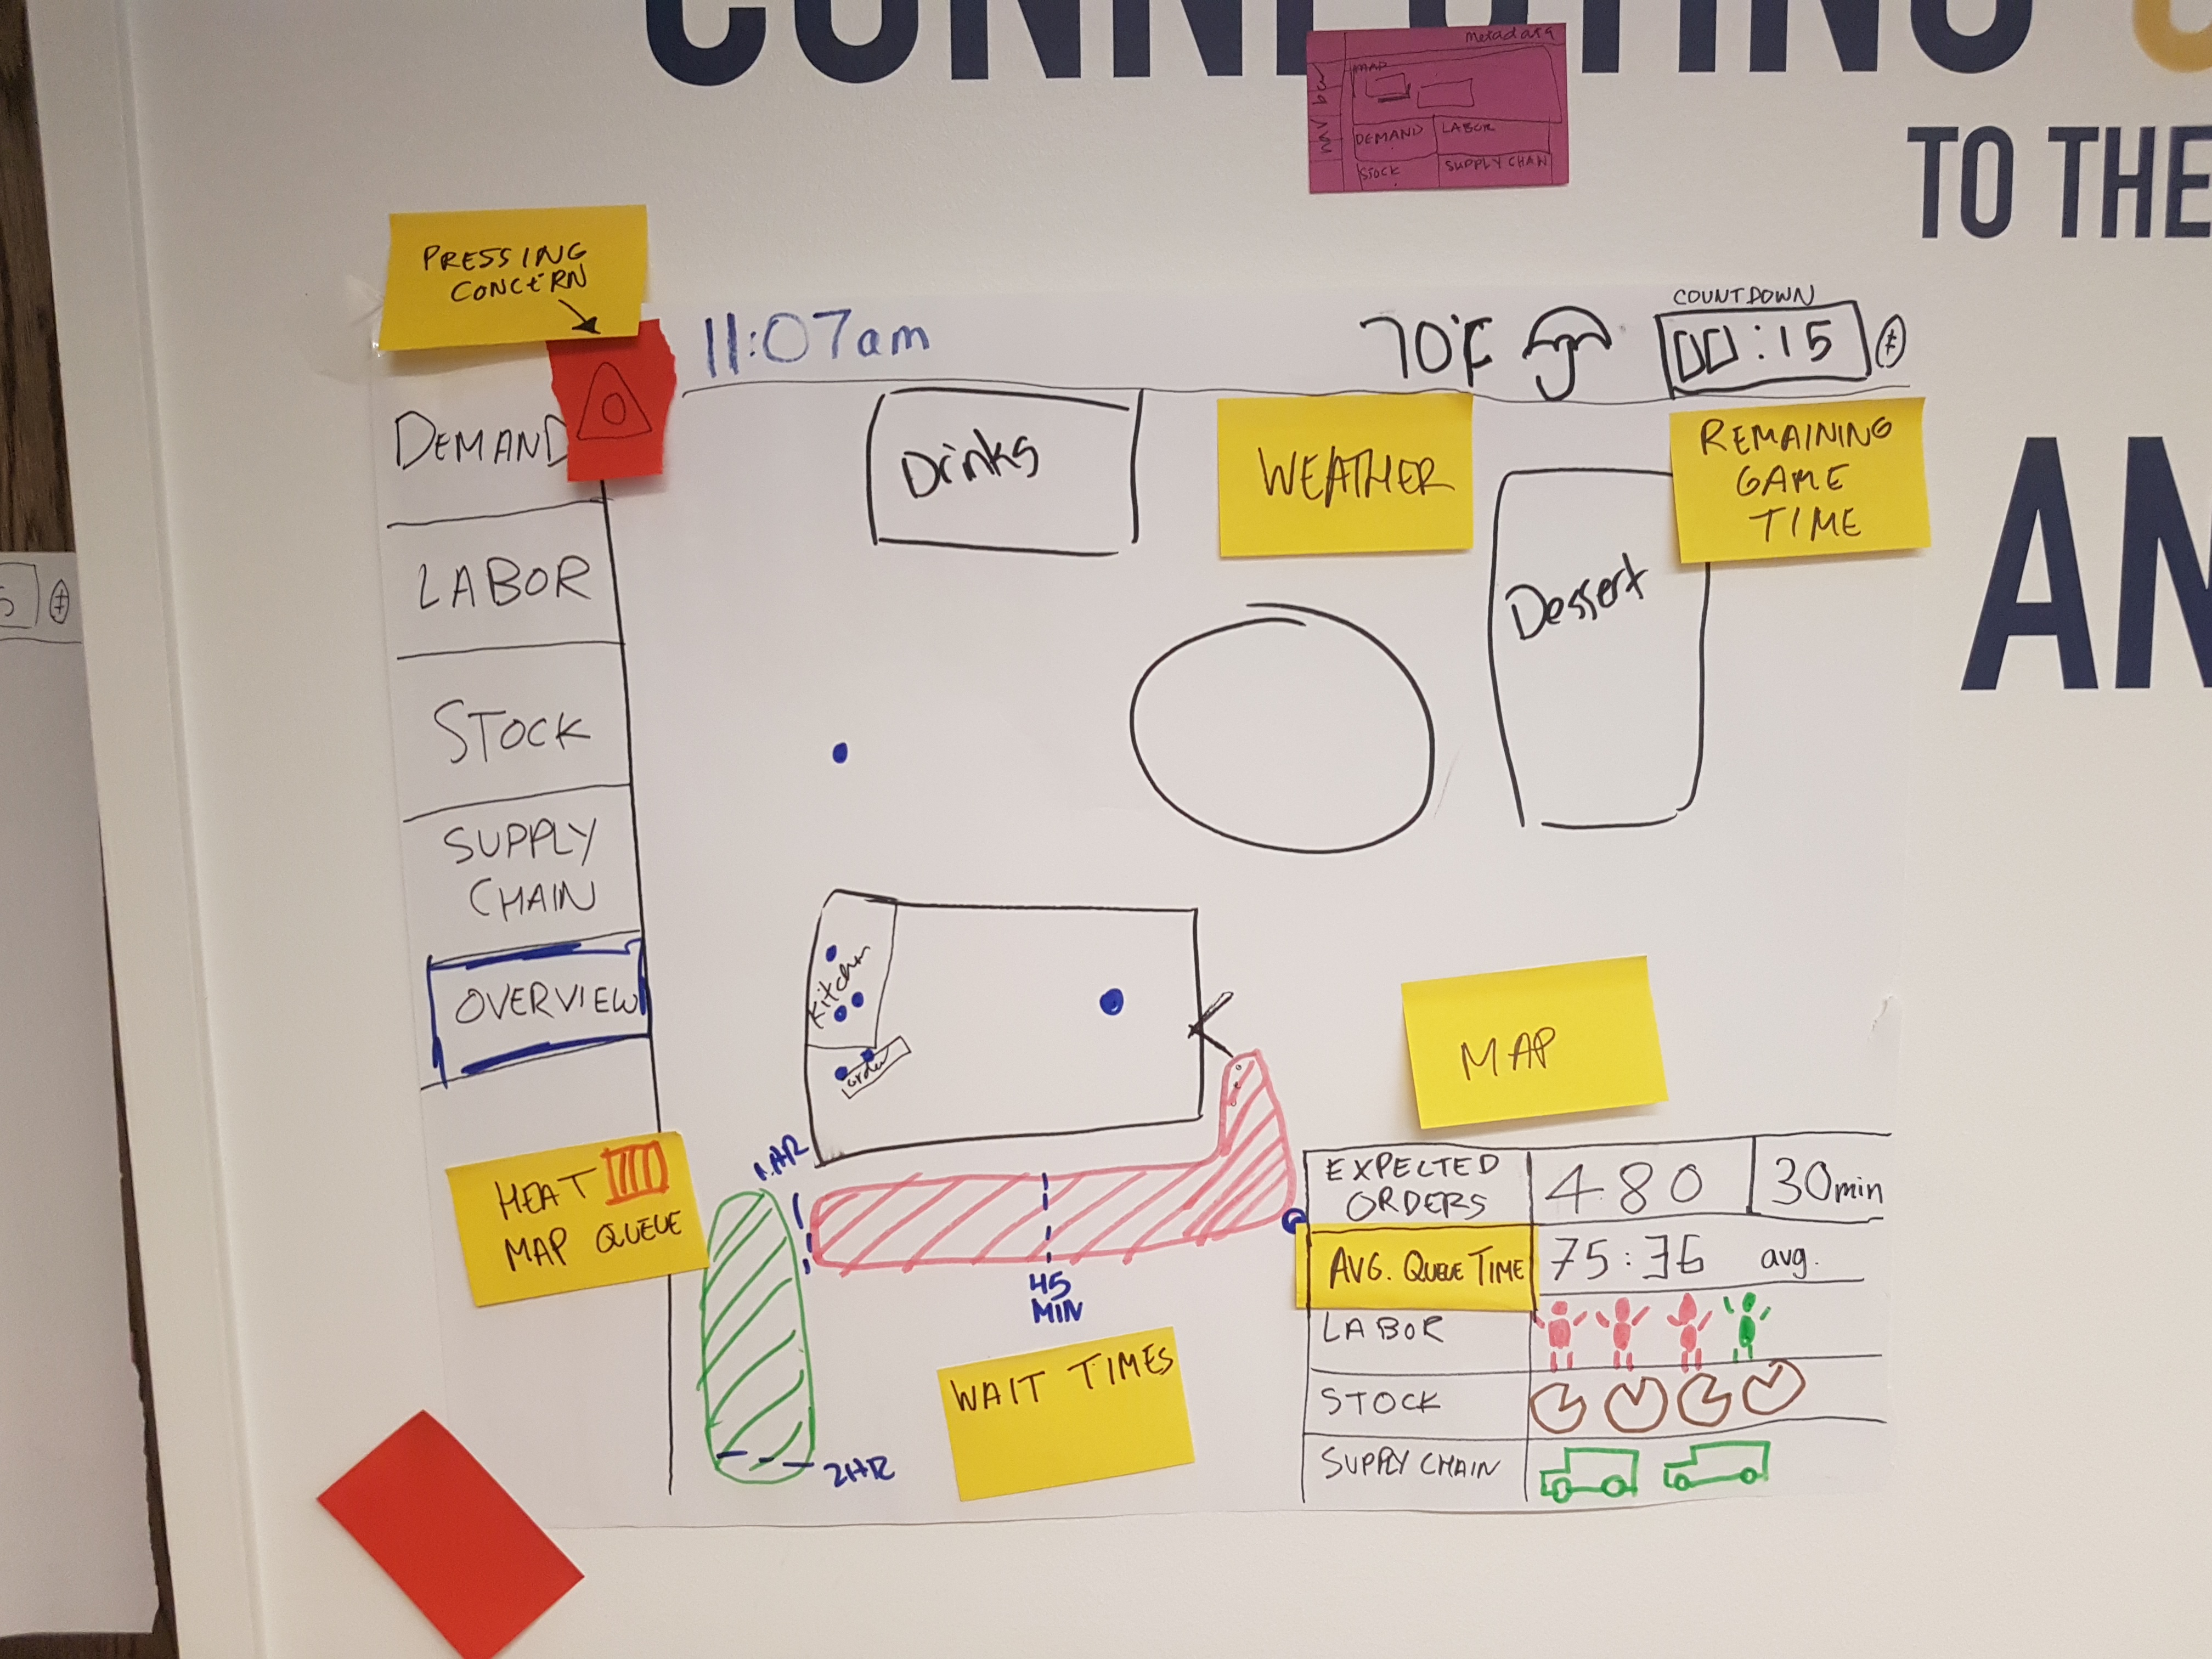 TO THE
metadata
MAP
DEMAND
LABOR
STOCK
SUPPLY CHAN
PRESSING
CONCERN
11:07am
70°F
COUNTDOWN
00:15
DEMAND
LABOR
STOCK
SUPPLY
CHAIN
OVERVIEW
Drinks
WEATHER
REMAINING
GAME
TIME
Dessert
Kitchen
order
MAP
HEAT
MAP QUEUE
1 HR
45
MIN
2HR
WAIT TIMES
EXPECTED
ORDERS
480
30min
AVG. QUEUE TIME
75:36 avg.
LABOR
STOCK
SUPPLY CHAIN